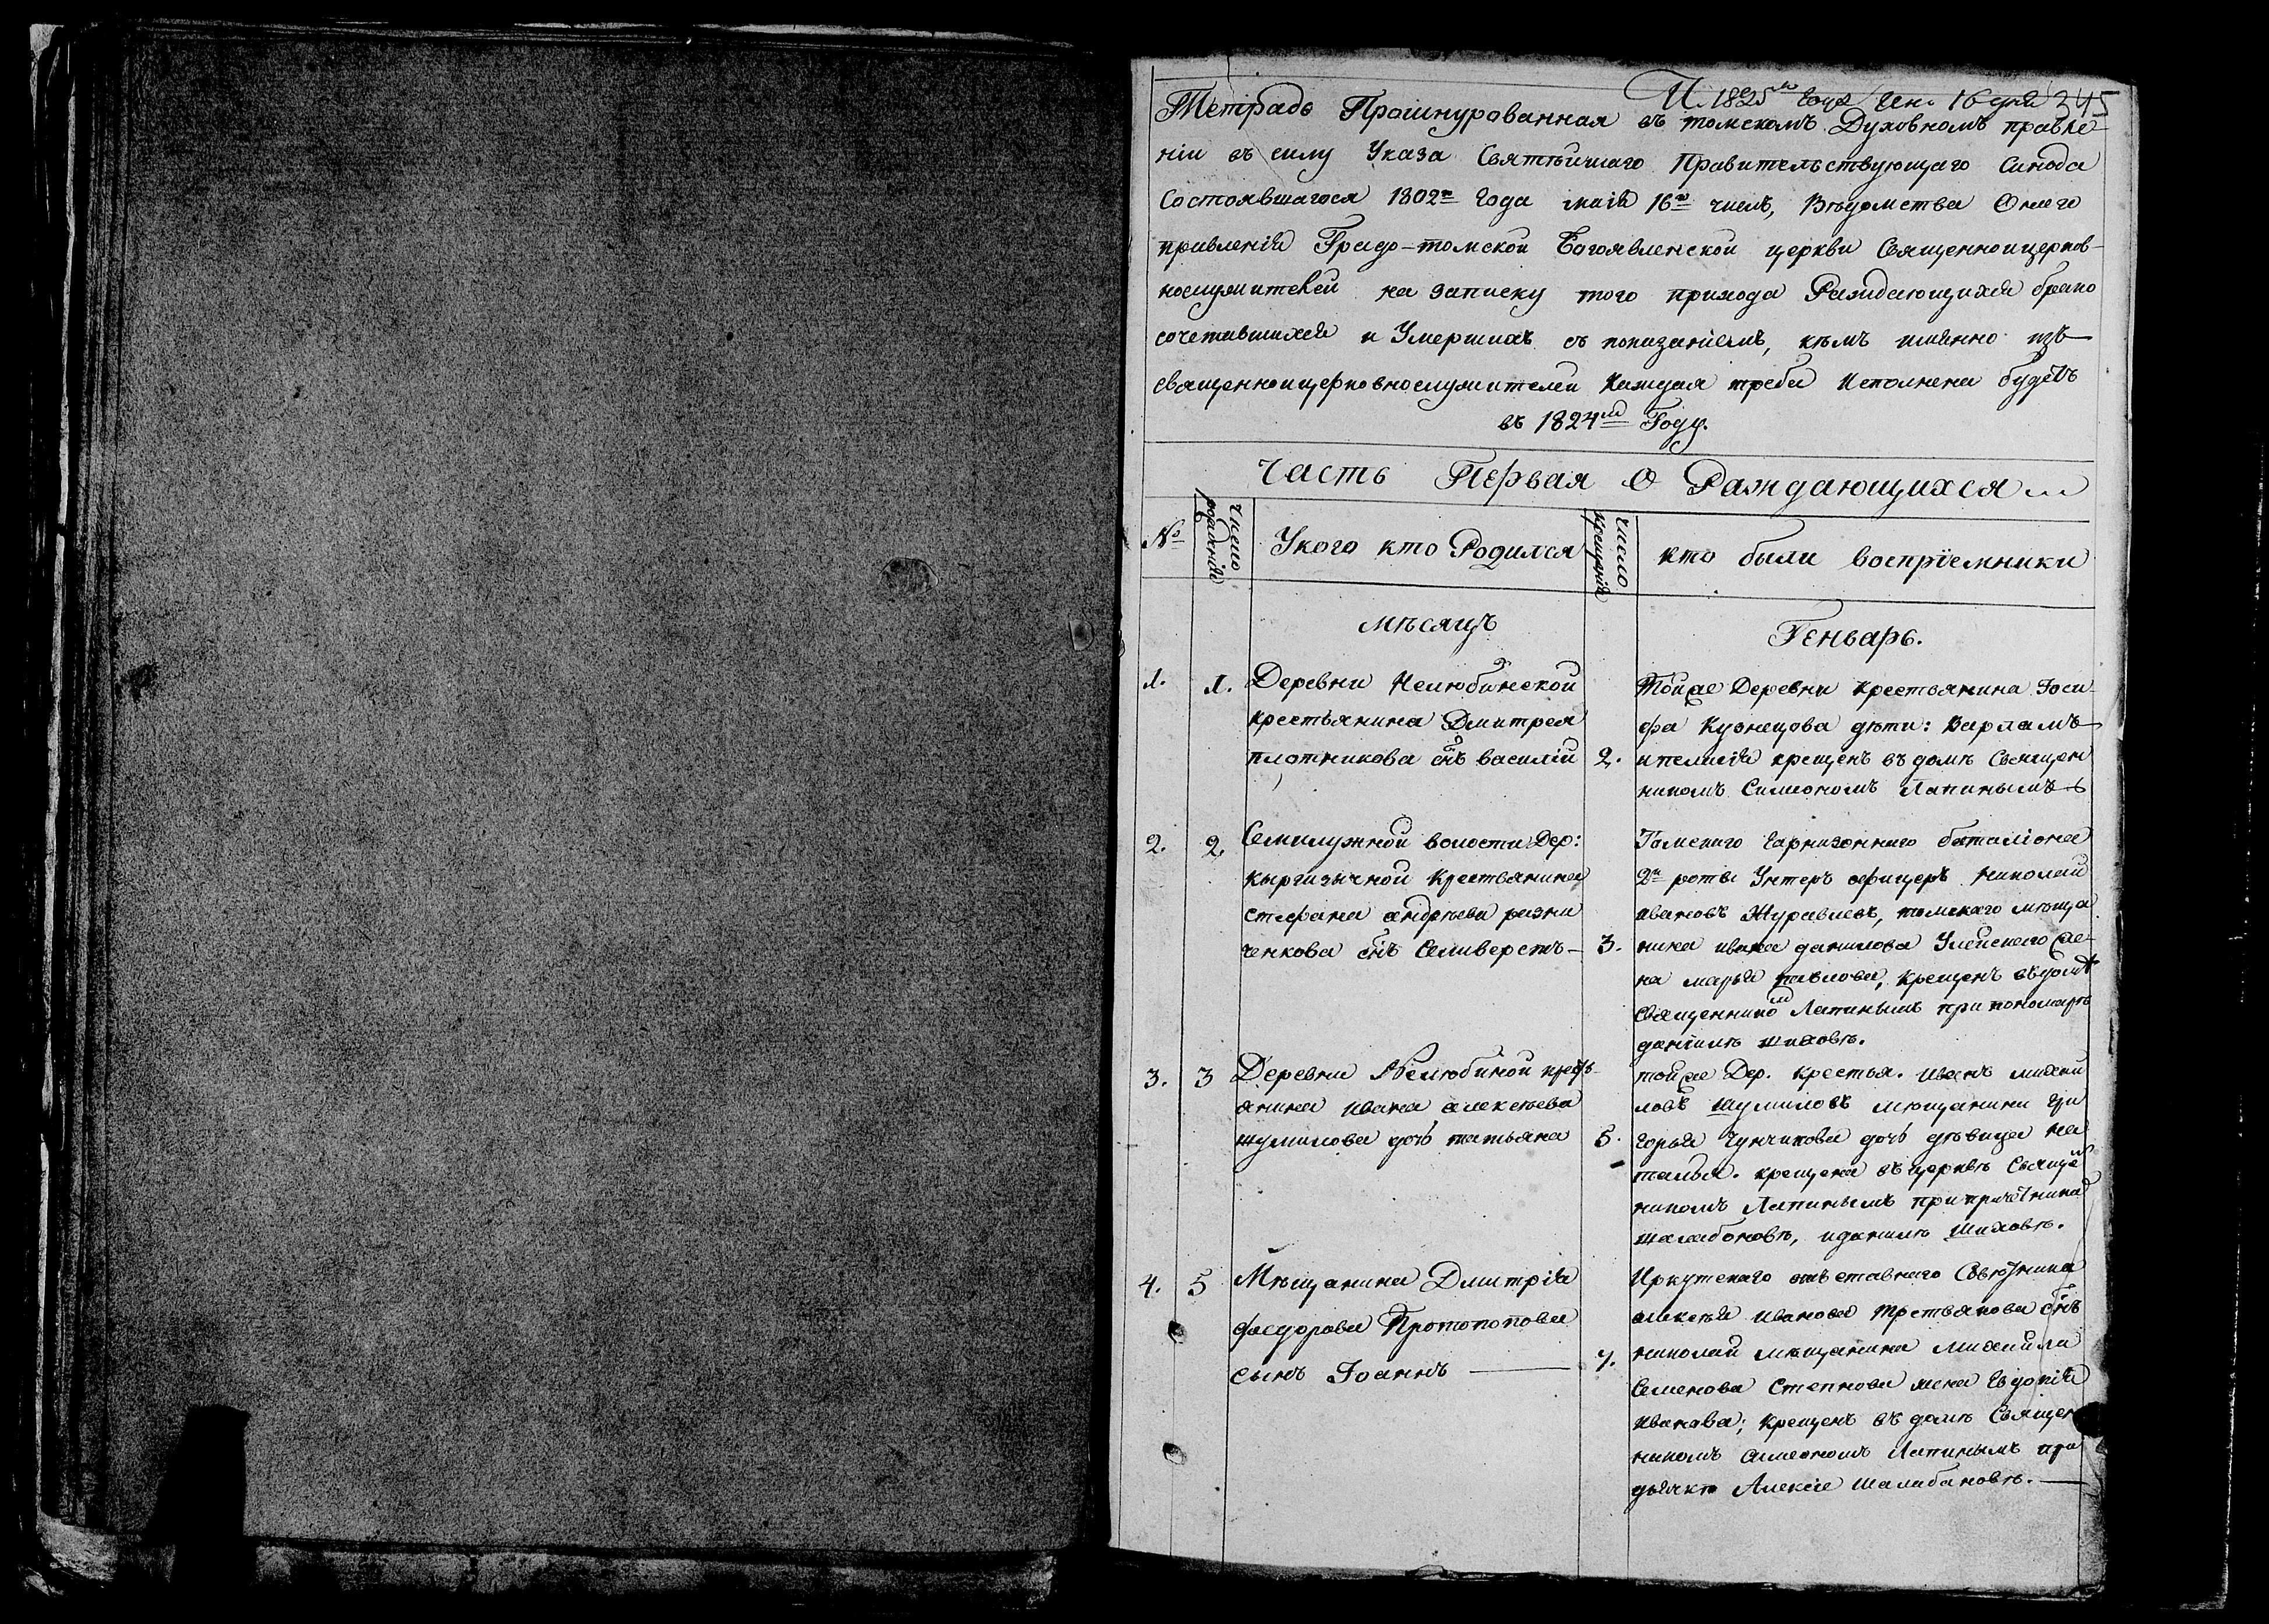 П. 1825го года Ген. 16 дня 345
Тетрадь Прошнурованная въ томскомъ Духовномъ правле-
ніи въ силу Указа Святѣйшаго Правительствующаго Синода
Состоявшагося 1802го Года маія 16го числ, Вѣдомства Онаго
правленія Градо-томской Богоявленской церкви Священноицерков-
нослужителей на записку того прихода Раждающихся брако
сочетавшихся и Умершихъ съ показаніемъ, кѣмъ имянно изъ
священноицерковнослужителей Каждая треба Исполнена будетъ
въ 1824м Году.
Часть Первая О Раждающихся
№
Число рожденія
Укого кто Родился
Число крещенія
кто были воспріемники
мѣсяцъ
Генварь.
1. 1. Деревни Нелюбинской
крестьянина Дмитрея
плотникова снъ василій
2.
Тойже Деревни крестьянина Іоси-
фа Кузнецова дѣти: Варламъ
крещенъ въ домѣ Священ
никомъ Симеономъ Лапинымъ
2. 2. Семилужной волости Дер:
кыргизычной Крестьянина
стефана андреева разни
ченкова снъ Селиверстъ
3.
Томскаго гарнизоннаго баталіона
2й роты Унтеръ офицеръ николай
ивановъ Журавлевъ, томскаго мѣща
нина ивана данилова же-
на марья павлова, Крещенъ въ домѣ
Священникомъ Лапинымъ при пономарѣ
даніилѣ шиховѣ.
3. 3 Деревни Нелюбиной кресть-
янина ивана алексѣева
шумилова дочь татьяна
5.
тойже Дер. крестья. иванъ михаи
ловъ шумиловъ мѣщанина гри
горья дочь дѣвица на
талья. крещена въ церквѣ Священ
никомъ Лапинымъ при
шалабановѣ, иданилѣ шиховѣ.
4. 5 Мѣщанина Дмитрія
федорова Протопопова
сынъ Іоаннъ
7.
Иркутскаго отставнаго
алексѣя иванова третьякова снъ
николай мѣщанина михаила
Семенова жена Евдокія
Иванова; крещенъ въ домѣ Священ
никомъ симеономъ Лапинымъ при
дьячкѣ Алексіе шалабановѣ.